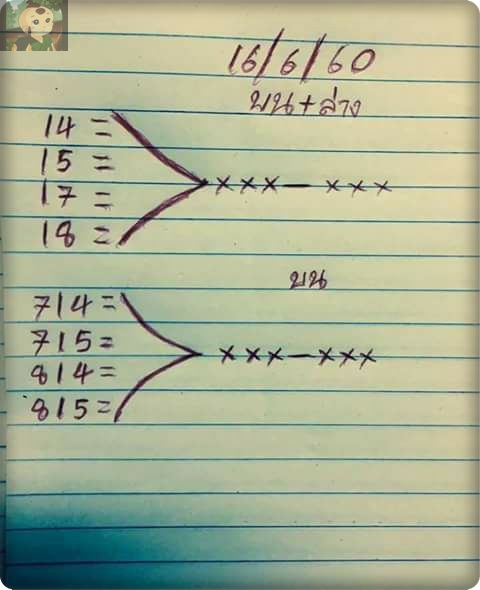 16/6/60
บน+ล่าง
14 =
15 =
17 =
18 =
xxx — xxx
บน
714 =
715 =
814 =
815 =
xxx — xxx